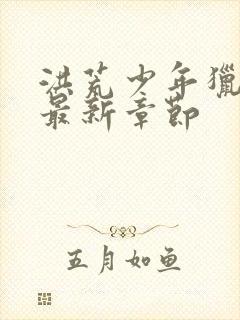 洪荒少年猎
最新章节
五月如鱼